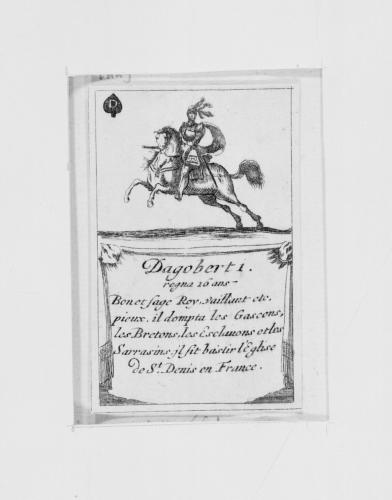 D
Dagobert 1.
regna 16 ans
Bon et sage Roy, vaillant etc.
pieux. il dompta les Gascons,
les Bretons, les Esclauons et les
Sarrasins, jl fit bastir l'Eglise
de St. Denis en France.